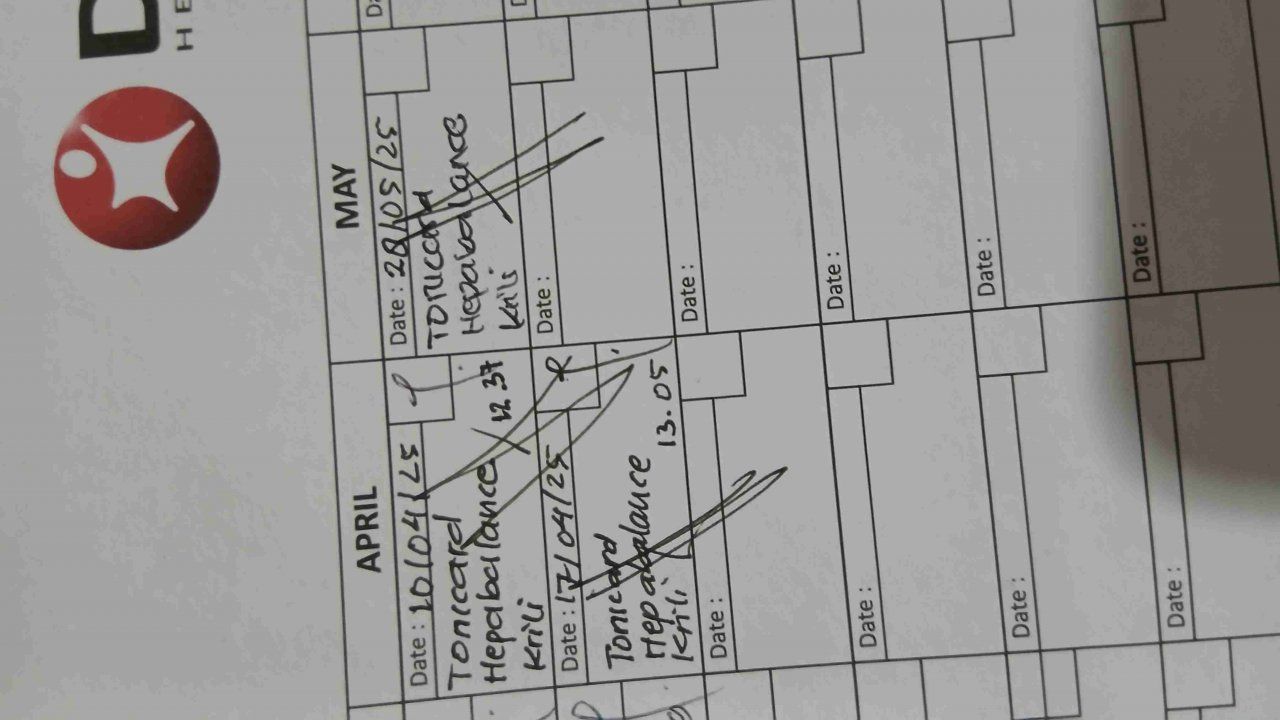 D
HE
APRIL
MAY
Date : 10/04/25
Tonicard
Hepabalance
12 37
Krili
Date : 17/04/25
Tonicard
Hepabalance
Krili
13.05
Date :
Date :
Date :
Date :
Date : 28/05/25
Tonicard
Hepabalance
Krili
Date :
Date :
Date :
Date :
Date :